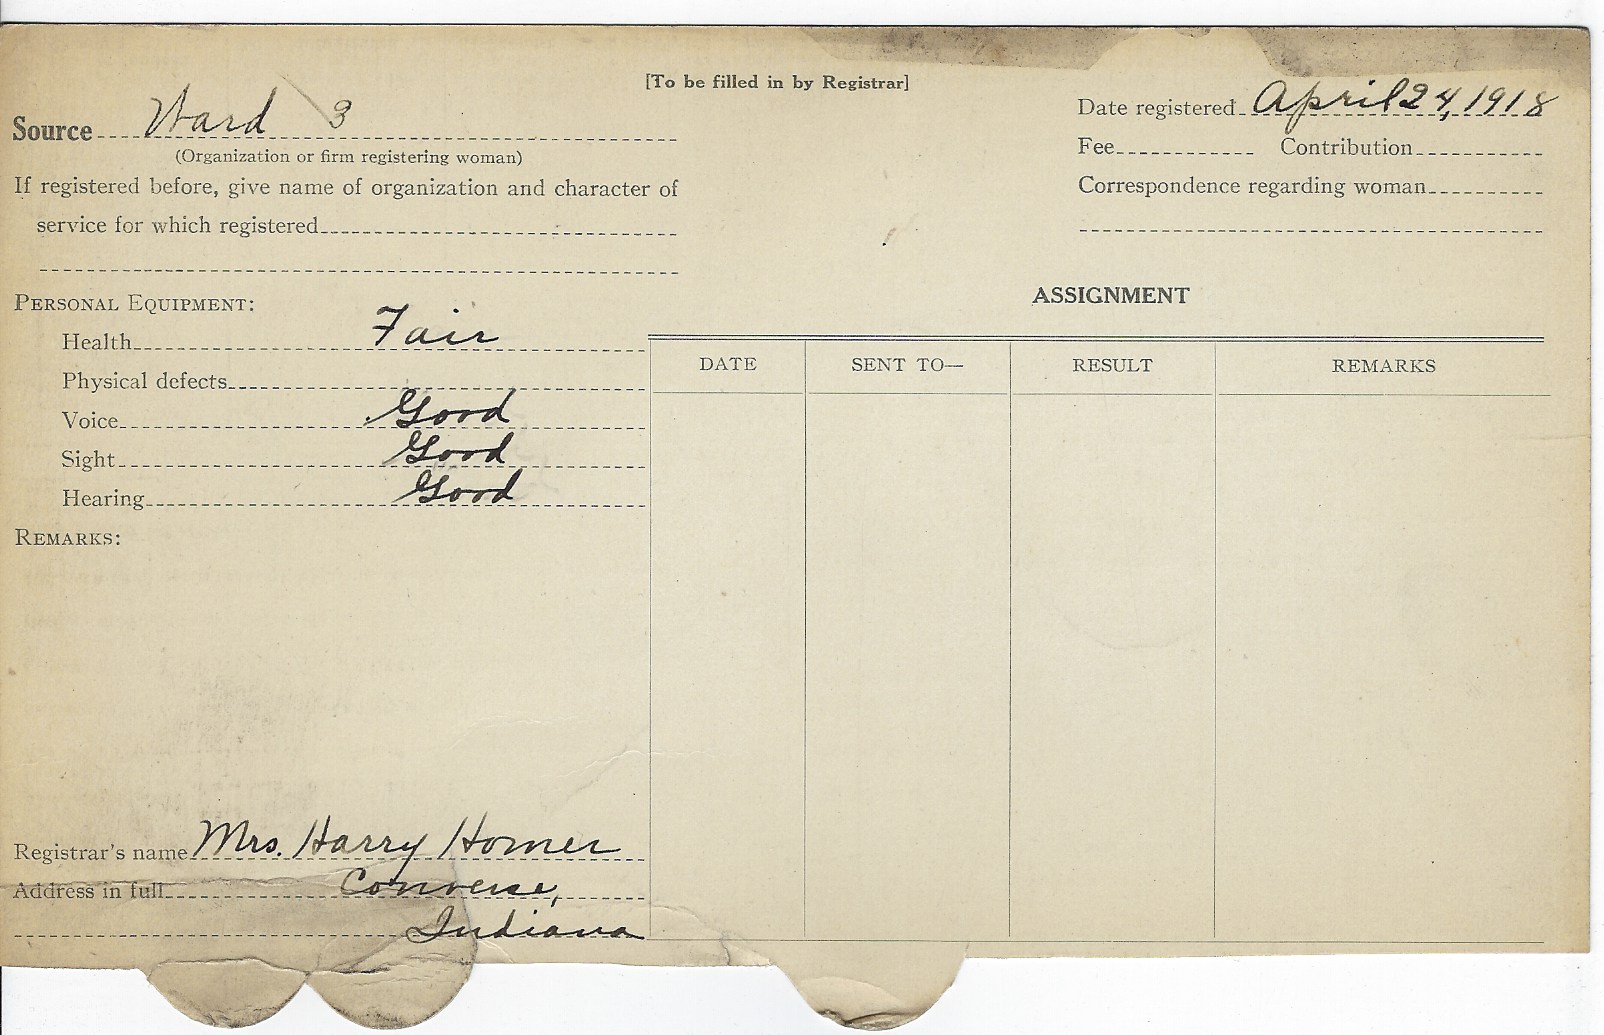 [To be filled in by Registrar]
Source Ward 3
(Organization or firm registering woman)
If registered before, give name of organization and character of
service for which registered
Date registered April 24, 1918
Fee Contribution
Correspondence regarding woman
PERSONAL EQUIPMENT:
Health Fair
Physical defects
Voice Good
Sight Good
Hearing Good
REMARKS:
Registrar's name Mrs. Harry Horner
Address in full Converse,
Indiana
ASSIGNMENT
DATE SENT TO— RESULT REMARKS